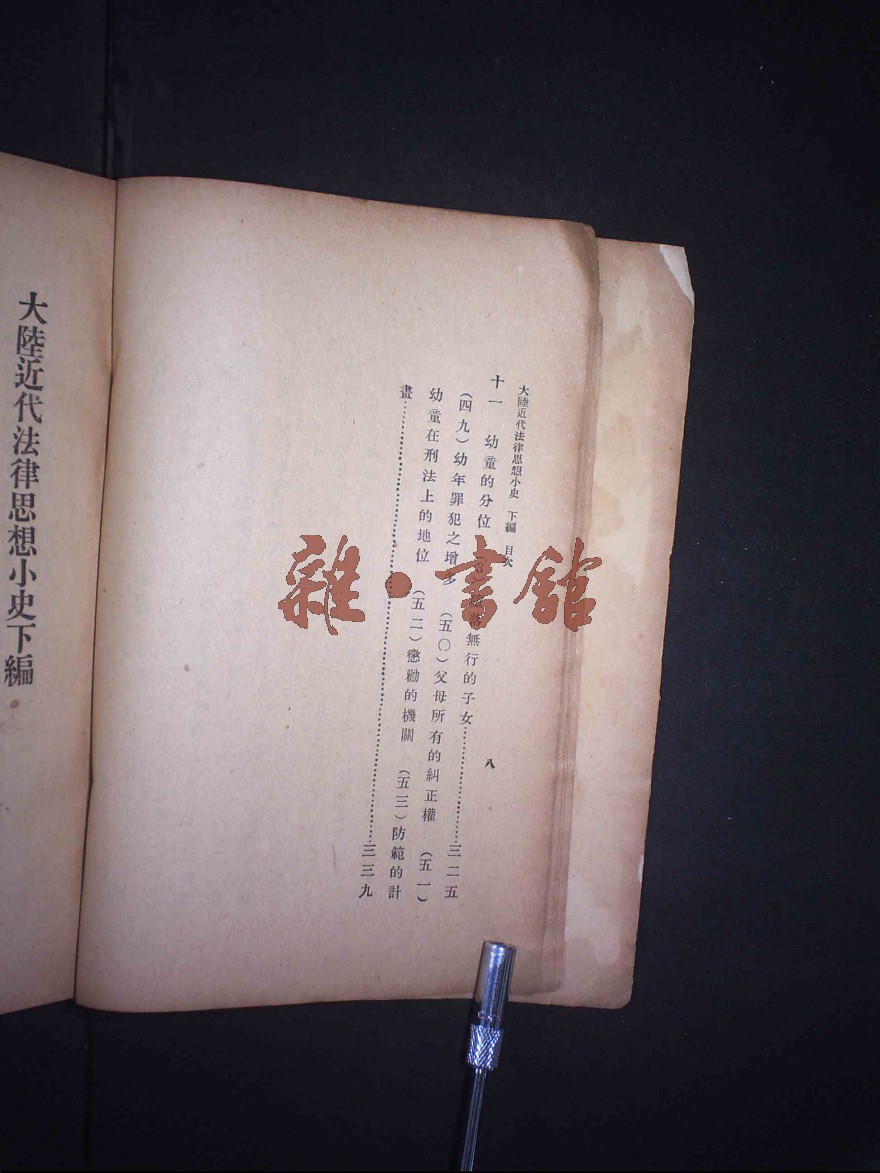 大陸近代法律思想小史 下編 目次
八
十一 幼童的分位 (3) 無行的子女……三二五
(四九)幼年罪犯之增多 (五〇)父母所有的糾正權 (五一)
幼童在刑法上的地位 (五二)懲勸的機關 (五三)防範的計
畫……三三九
大陸近代法律思想小史下編
雜·書館